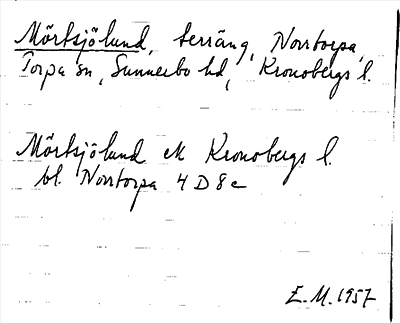 Mörtsjölund, terräng, Norrtorpa,
Torpa sn, Sunnerbo hd, Kronobergs l.
Mörtsjölund ek Kronobergs l.
bl. Norrtorpa 4 D 8 c
E. M. 1957